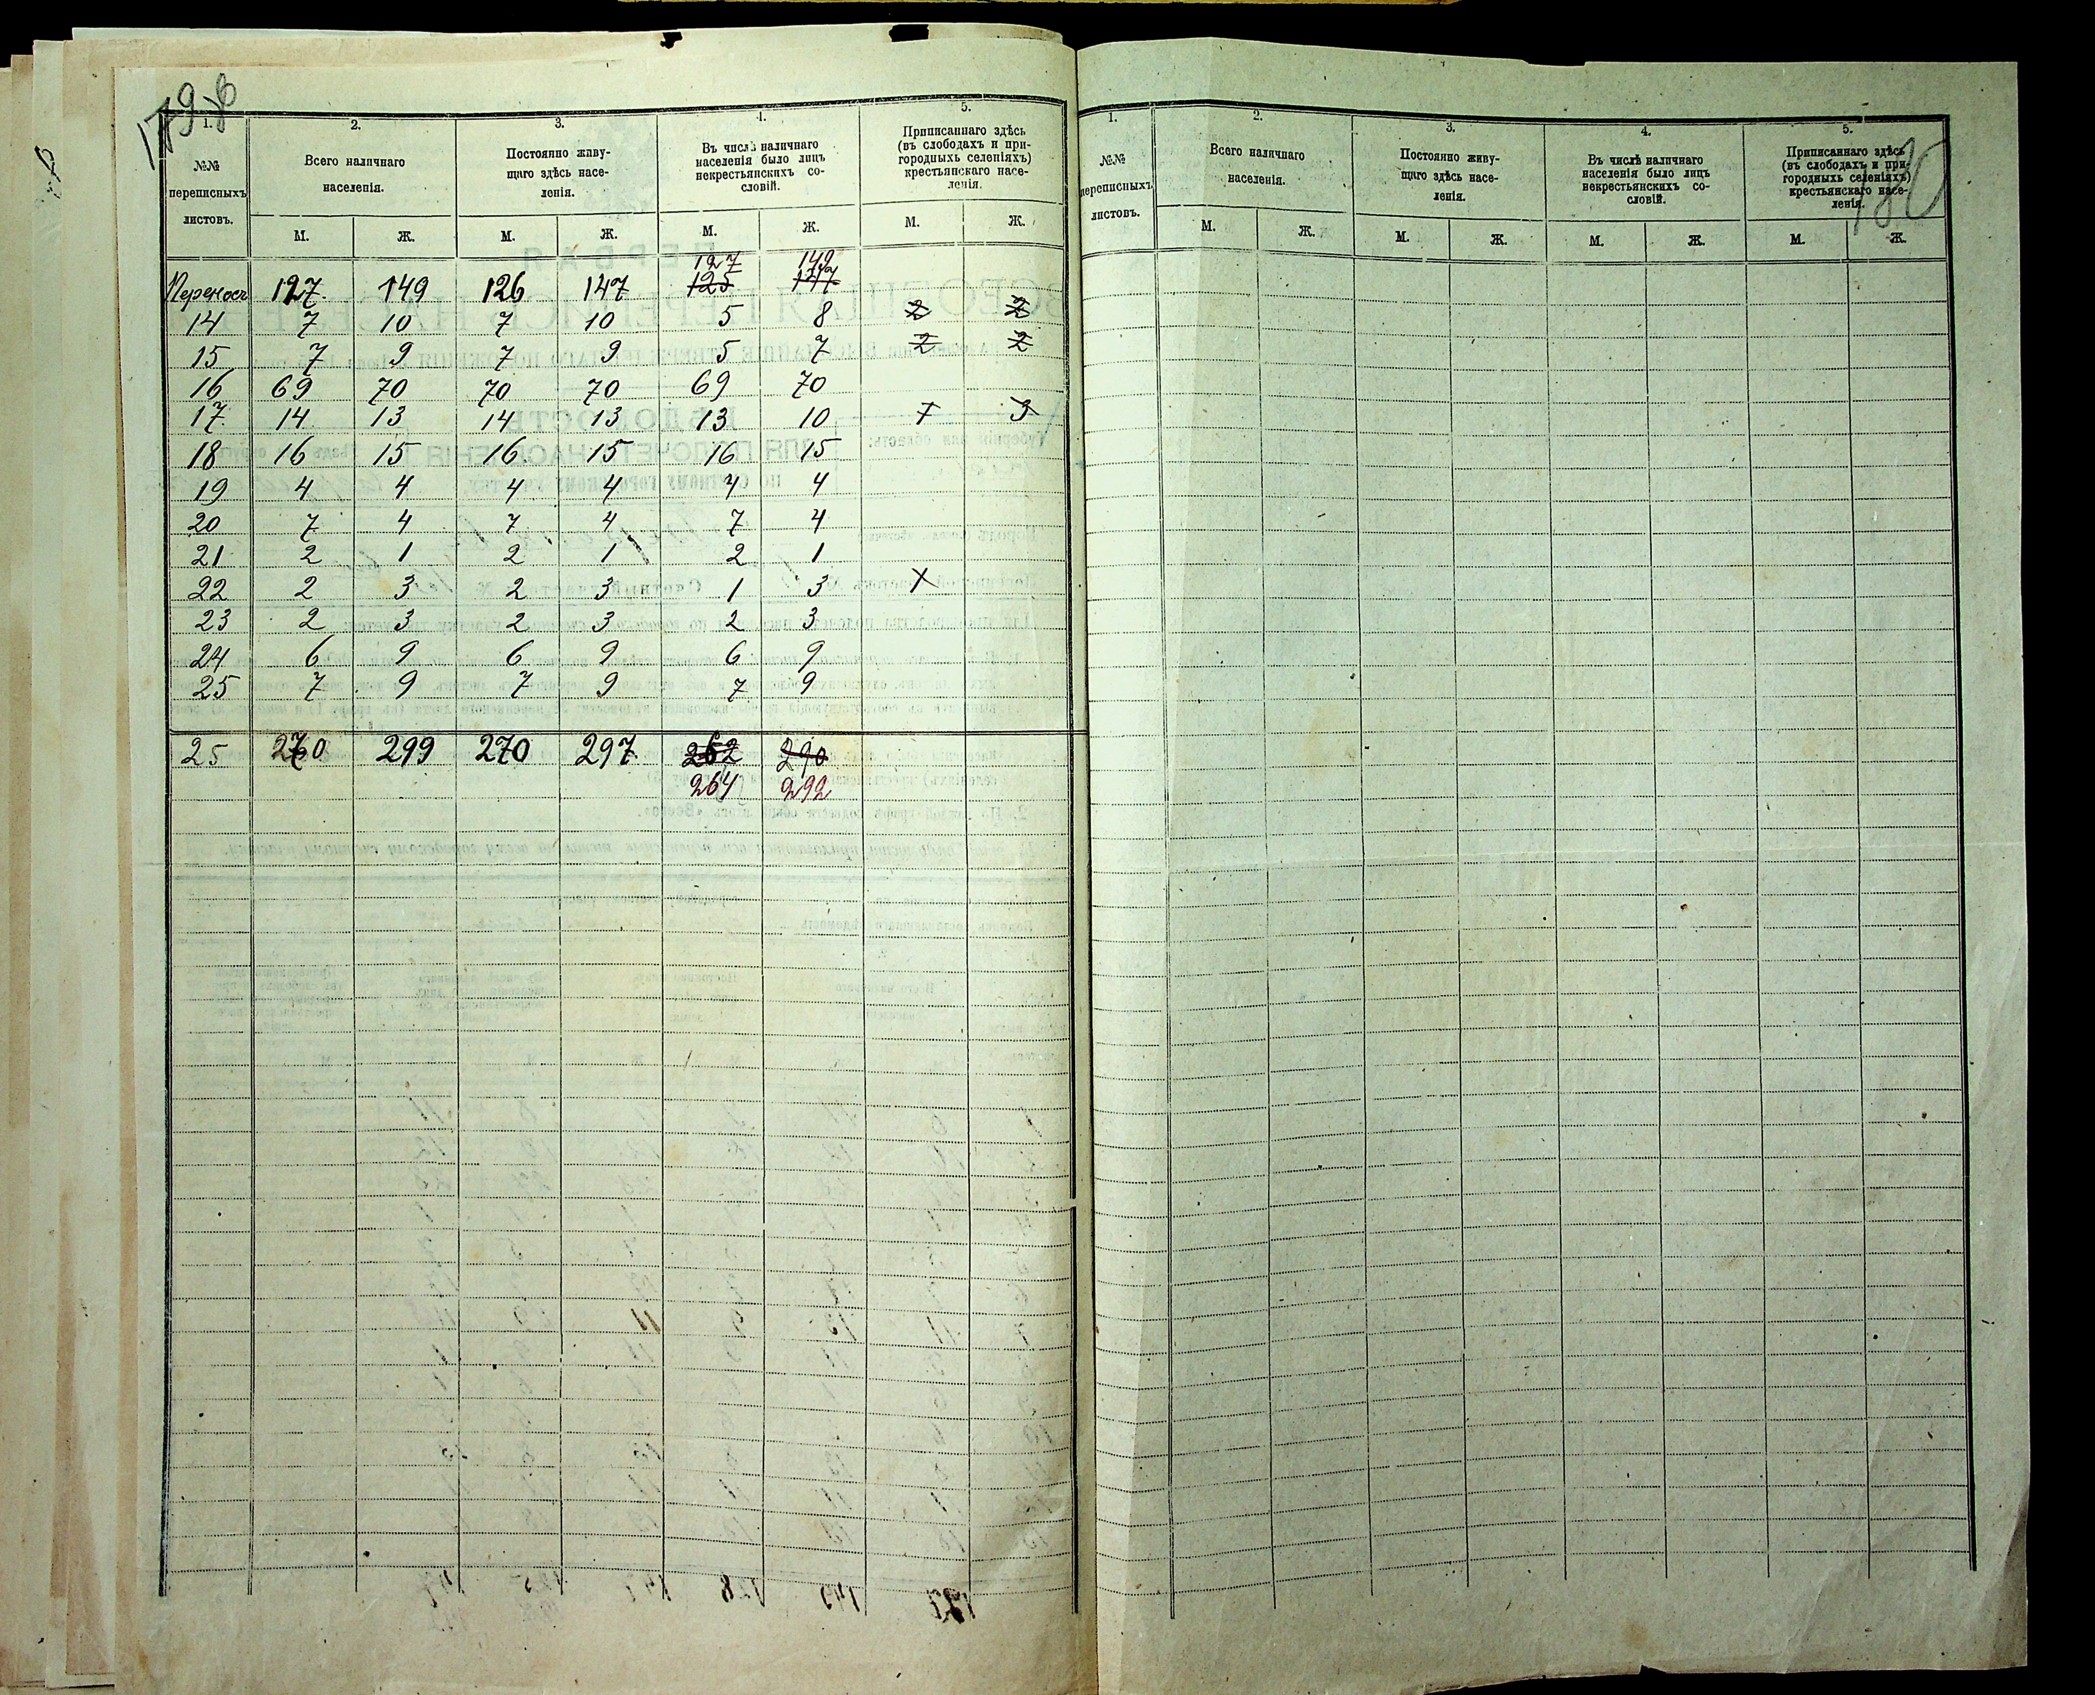 1. 2. 3. 4. 5.
№№ переписныхъ листовъ.
Всего наличнаго населенія.
Постоянно живущаго здѣсь населенія.
Въ числѣ наличнаго населенія было лицъ некрестьянскихъ сословій.
Приписаннаго здѣсь (въ слободахъ и пригородныхъ селеніяхъ) крестьянскаго населенія.
М. Ж. М. Ж. М. Ж. М. Ж.
127 149
Переносъ 127 149 126 147 125 147
14 7 10 7 10 5 8 2 2
15 7 9 7 9 5 7 2 2
16 69 70 70 70 69 70
17 14 13 14 13 13 10 1 3
18 16 15 16 15 16 15
19 4 4 4 4 4 4
20 7 4 7 4 7 4
21 2 1 2 1 2 1
22 2 3 2 3 1 3 1
23 2 3 2 3 2 3
24 6 9 6 9 6 9
25 7 9 7 9 7 9
25 270 299 270 297 262 290
264 292
180
1. 2. 3. 4. 5.
№№ переписныхъ листовъ.
Всего наличнаго населенія.
Постоянно живущаго здѣсь населенія.
Въ числѣ наличнаго населенія было лицъ некрестьянскихъ сословій.
Приписаннаго здѣсь (въ слободахъ и пригородныхъ селеніяхъ) крестьянскаго населенія.
М. Ж. М. Ж. М. Ж. М. Ж.